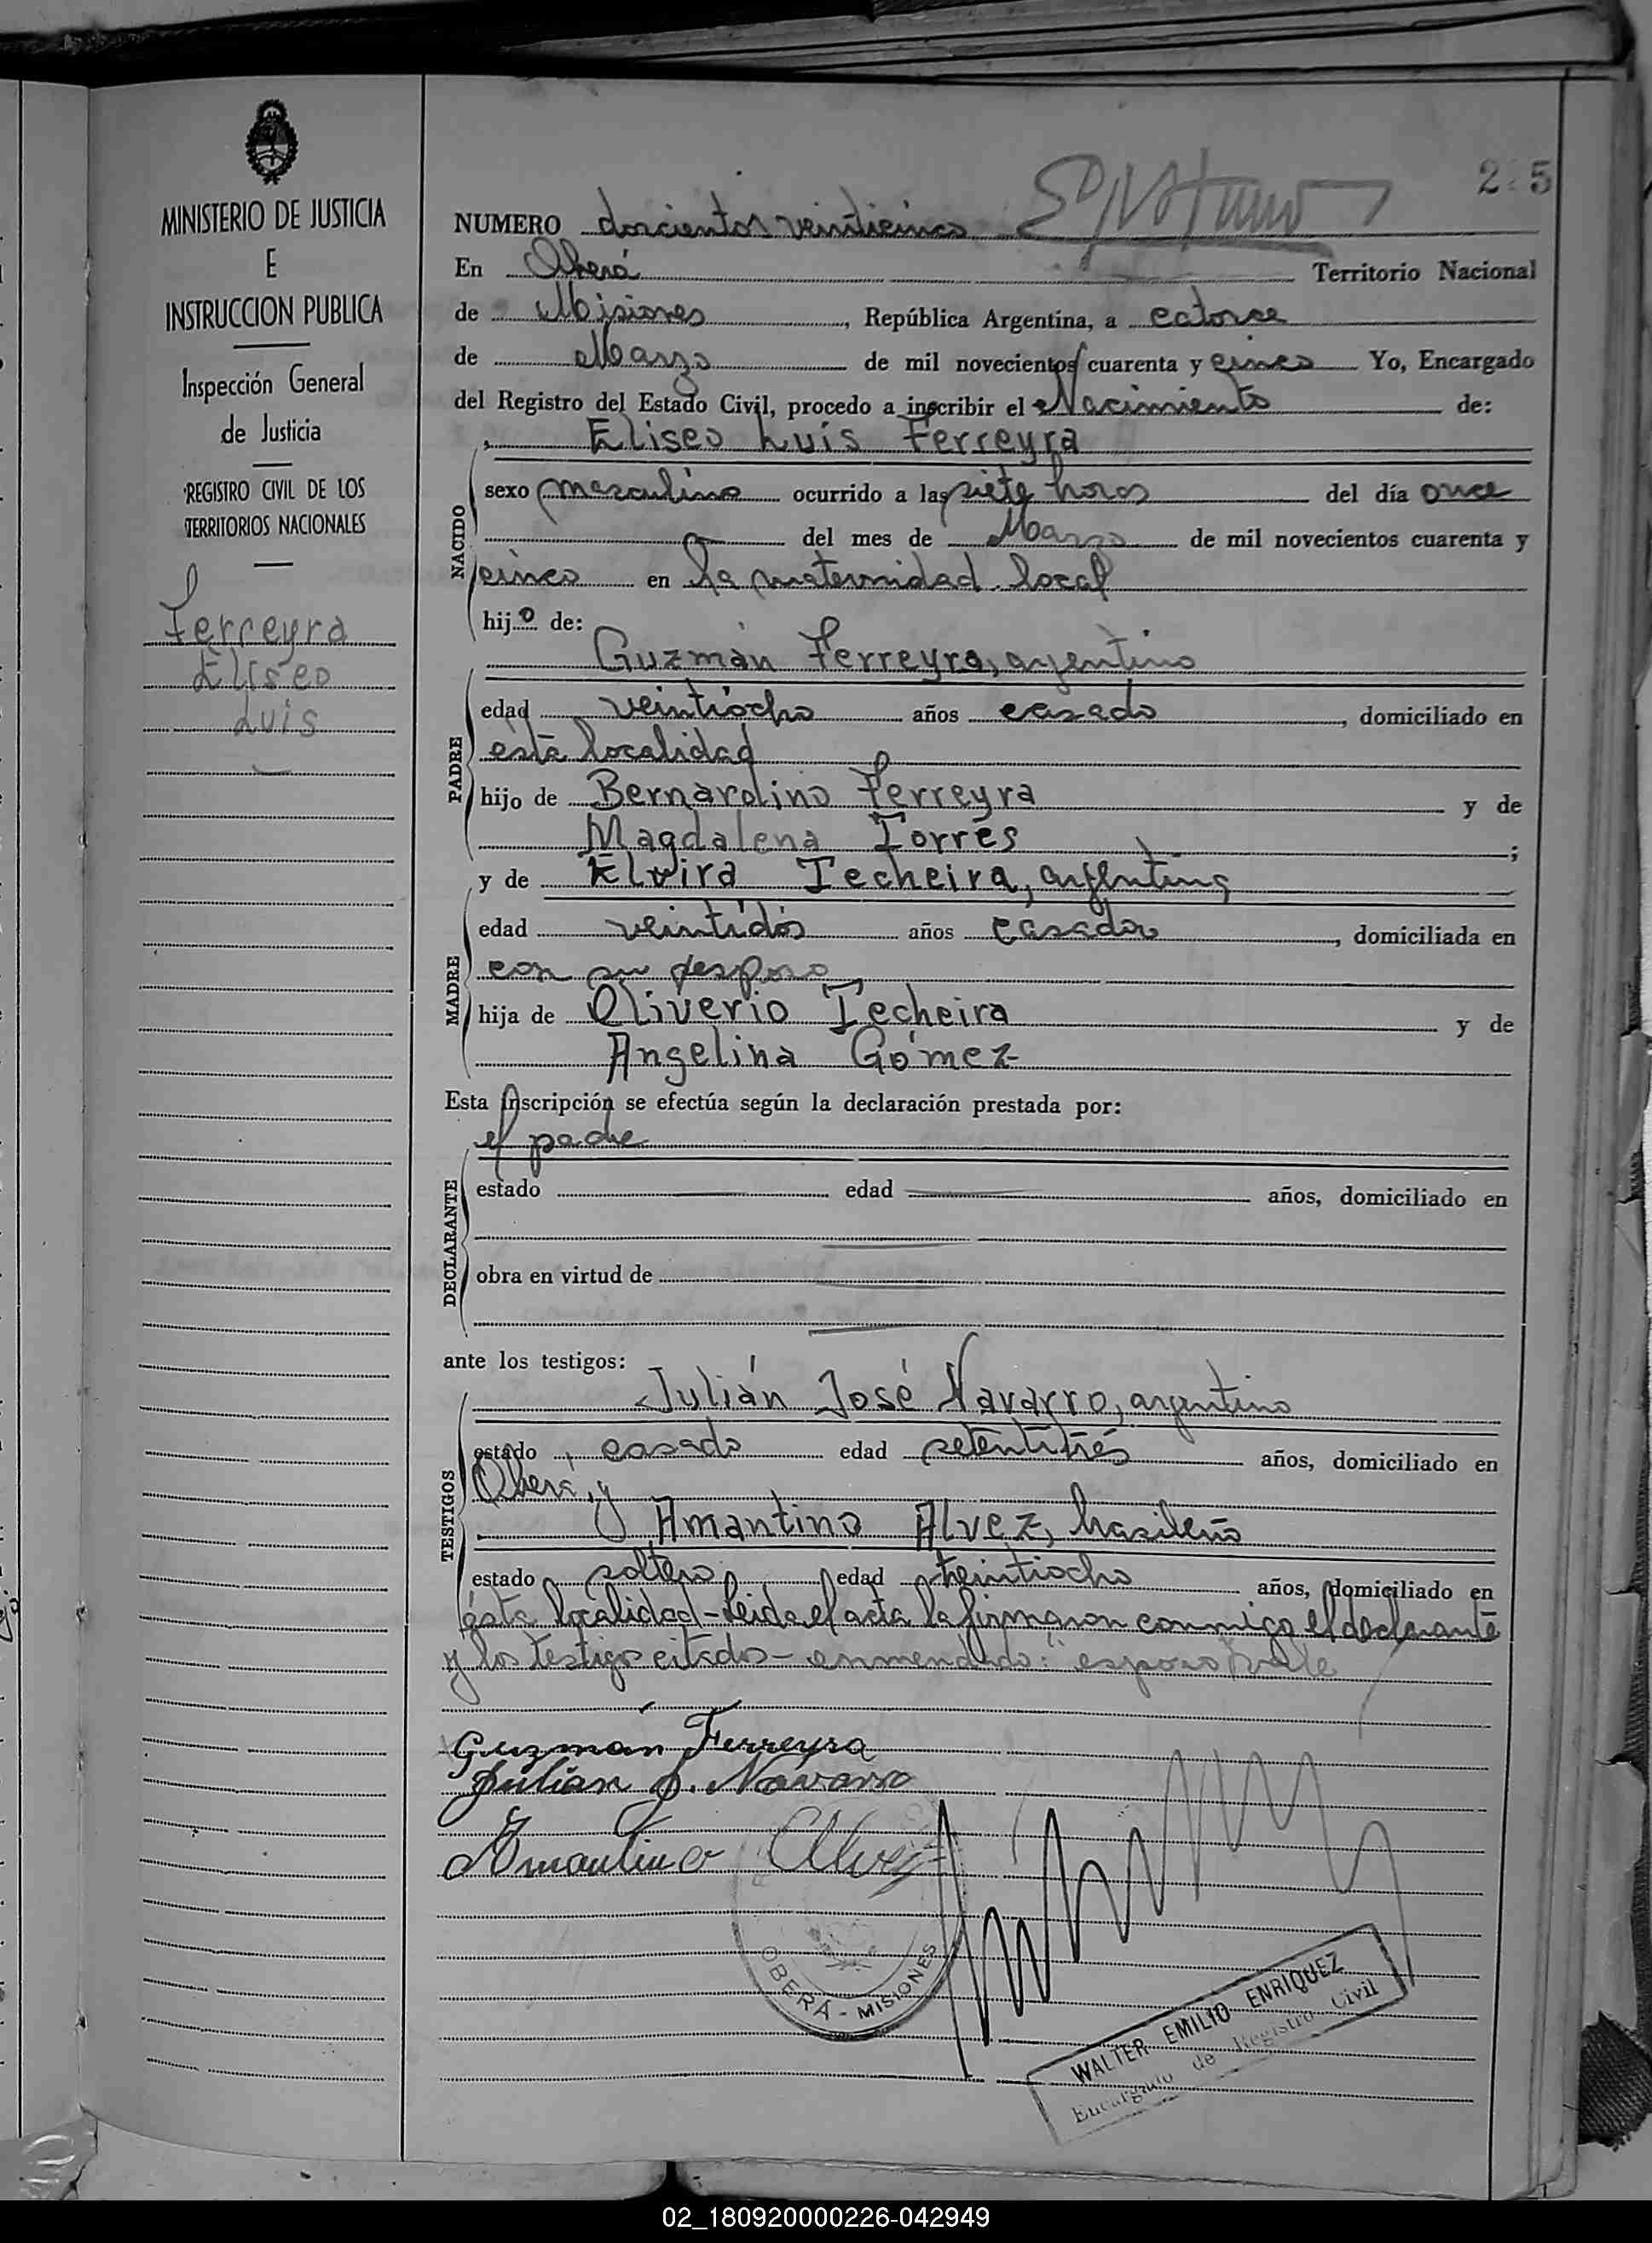 MINISTERIO DE JUSTICIA
E
INSTRUCCION PUBLICA
Inspección General
de Justicia
REGISTRO CIVIL DE LOS
TERRITORIOS NACIONALES
Ferreyra
Eliseo
Luis
2 5
NUMERO doscientos veinticinco
En Oberá Territorio Nacional
de Misiones, República Argentina, a catorce
de Marzo de mil novecientos cuarenta y cinco Yo, Encargado
del Registro del Estado Civil, procedo a inscribir el Nacimiento de:
Eliseo Luis Ferreyra
NACIDO
sexo masculino ocurrido a las siete horas del día once
del mes de Marzo de mil novecientos cuarenta y
cinco en la maternidad local
hijo de:
Guzmán Ferreyra, argentino
PADRE
edad veintiocho años casado, domiciliado en
ésta localidad
hijo de Bernardino Ferreyra y de
Magdalena Torres;
y de Elvira Techeira, argentina
MADRE
edad veintidós años casada, domiciliada en
con su esposo
hija de Oliverio Techeira y de
Angelina Gómez
Esta inscripción se efectúa según la declaración prestada por:
el padre
DECLARANTE
estado edad años, domiciliado en
obra en virtud de
ante los testigos:
Julián José Navarro, argentino
TESTIGOS
estado casado edad setentitrés años, domiciliado en
Oberá, y
Amantino Alvez, brasileño
estado soltero edad treintiocho años, domiciliado en
ésta localidad - Leida el acta la firmaron conmigo el declarante
y los testigos citados - enmendado: esposo vale
Guzmán Ferreyra
Julián J. Navarro
Amantino Alvez
OBERÁ - MISIONES
WALTER EMILIO ENRIQUEZ
Encargado de Registro Civil
02_180920000226-042949